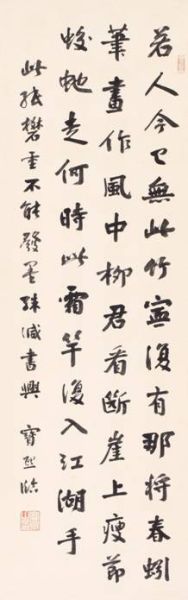 若人今已無此竹寧復有那將春蚓
筆畫作風中柳君看斷崖上瘦節
蛟虵走何時此霜竿復入江湖手
此紙礬重不能發墨殊減書興 寶熙臨